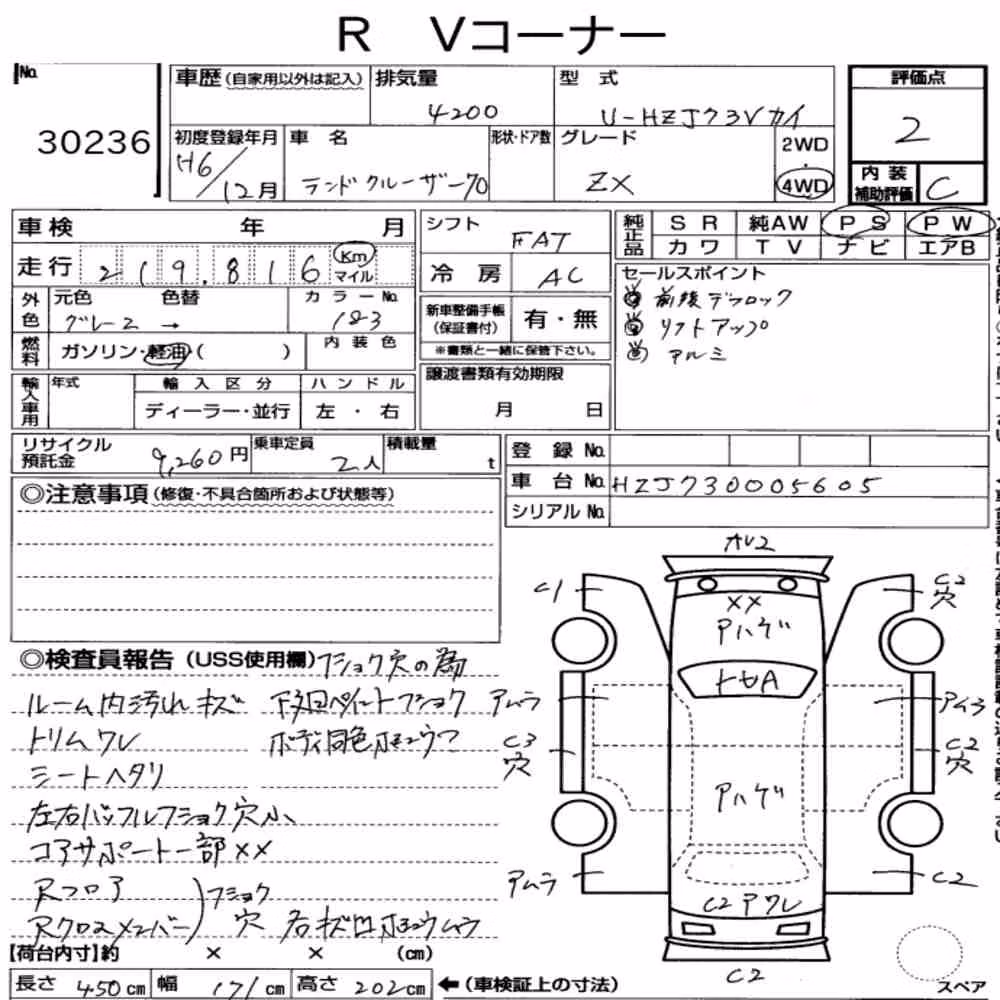 R Vコーナー
No. 30236
車歴(自家用以外は記入)
排気量 4200
型式 U-HZJ73Vカイ
評価点 2
内装補助評価 C
初度登録年月 H6/12月
車名 ランドクルーザー70
形状・ドア数
グレード ZX
2WD・4WD
車検 年 月
走行 219,816 Km マイル
シフト FAT
冷房 AC
純正品 SR 純AW PS PW
カワ TV ナビ エアB
セールスポイント
前後デフロック
リフトアップ
アルミ
外色 元色 グレー2 色替 → カラーNo. 183
燃料 ガソリン・軽油・( ) 内装色
新車整備手帳(保証書付) 有・無
※書類と一緒に保管下さい。
輸入車用 年式 輸入区分 ハンドル
ディーラー・並行 左・右
譲渡書類有効期限
月 日
リサイクル預託金 9,260円
乗車定員 2人
積載量 t
登録No.
車台No. HZJ730005605
シリアルNo.
◎注意事項(修復・不具合箇所および状態等)
◎検査員報告(USS使用欄) フショク穴の為
ルーム内汚れキズ 下回ペイントフショク
トリムワレ ボディ同色ホシュウア
シートヘタリ
左右バッフルフショク穴小
コアサポート一部XX
Rフロア
Rクロスメンバー フショク穴
右キズ凹ホシュウムラ
AU2
C1
C2穴
XX
アハゲ
トセA
アムラ
アムラ
C3穴
C2穴
アハゲ
アムラ
C2
C2アワレ
C2
スペア
【荷台内寸】約 × × (cm)
長さ 450cm 幅 171cm 高さ 202cm ←(車検証上の寸法)